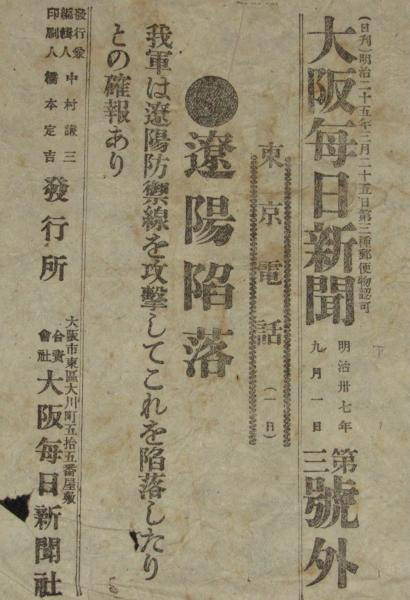 (日刊)明治二十五年三月二十五日第三種郵便物認可
大阪毎日新聞
明治卅七年
九月一日
第三號外
東京電話
(一日)
●遼陽陷落
我軍は遼陽防禦線を攻擊してこれを陷落したり
との確報あり
發行兼
編輯人
中村謙三
印刷人
橋本定吉
發行所
大阪市東區大川町五拾五番屋敷
合資
會社
大阪每日新聞社